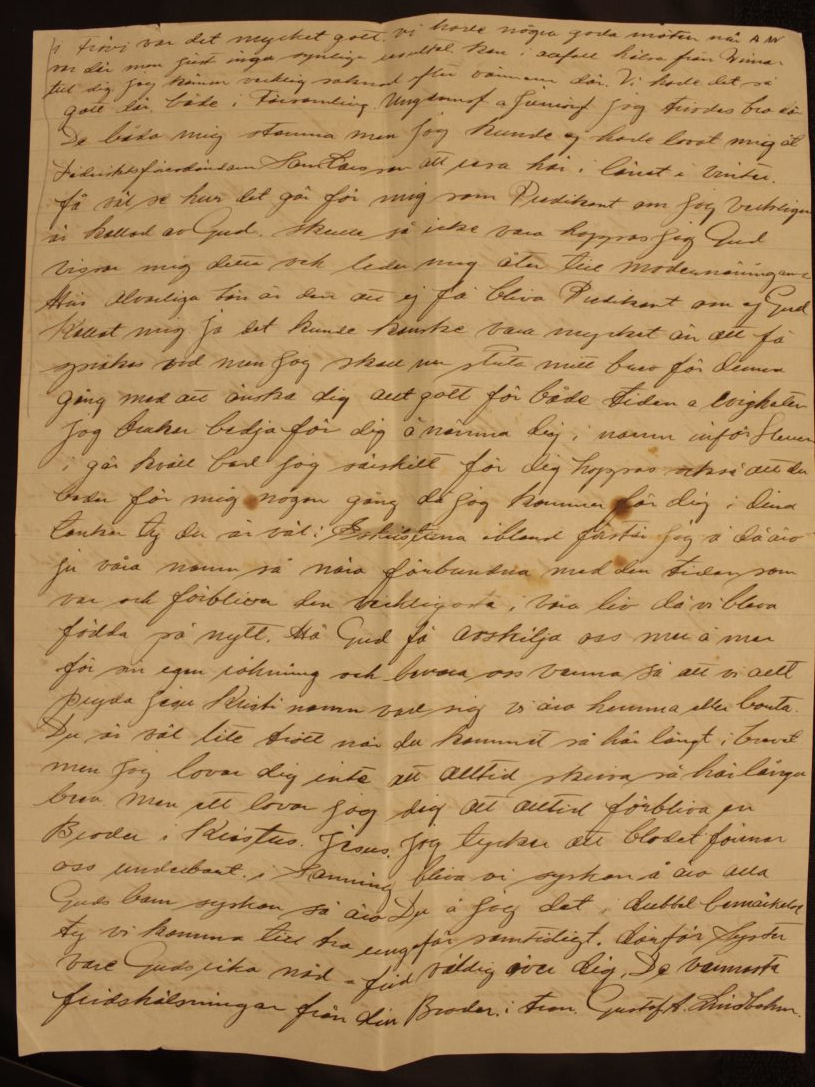 i Frövi var det mycket gott. vi hade några goda möten när A W
var där men just inga synliga resultat. kan i alla fall hälsa från
till dig jag känner verklig saknad efter vännerna där. Vi hade det så
gott där både i Församling. Ungdomsf a Juniorf jag trivdes bra där
De båda mig stanna men jag kunde ej hade lovat mig åt
Distriktsföreståndaren att vara här i länet i vinter.
få väl se hur det går för mig som Predikant om jag verkligen
är kallad av Gud. skulle så icke vara hoppas jag Gud
visar mig detta och leder mig åter till modernäringarna
Min allvarliga bön är den att ej få bliva Predikant om ej Gud
Kallat mig ja det kunde kanske vara mycket än att få
språkas vid men jag skall nu sluta mitt brev för denna
gång med att önska dig allt gott för både tiden a evigheten
jag brukar bedja för dig å nämna dig i namn inför Herren
i går kväll bad jag särskilt för dig hoppas också att du
beder för mig någon gång då jag kommer för dig i dina
tankar ty du är väl i Eskilstuna ibland förstår jag å då äro
ju våra namn så nära förbundna med den tiden som
var och förbliver den verkligaste i våra liv då vi bleva
födda på nytt. Må Gud få avskilja oss mer å mer
för sin egen räkning och bevara oss varma så att vi allt
pryda Jesu Kristi namn vare sig vi äro hemma eller borta.
Du är väl lite trött när du kommit så här långt i brevet
men jag lovar dig inte att alltid skriva så här långa
brev men ett lovar jag dig att alltid förbliva en
Broder i Kristus. Jesus. jag tycker att blodet förenar
oss underbart. i Sanning bliva vi syskon å äro alla
Guds barn syskon så äro Du å jag det i dubbel bemärkelse
ty vi komma till tro ungefär samtidigt. därför Syster
vare Guds rika nåd a frid väldig över dig. De varmaste
fridshälsningar från din Broder i tron. Gustof A. Lindbohm.